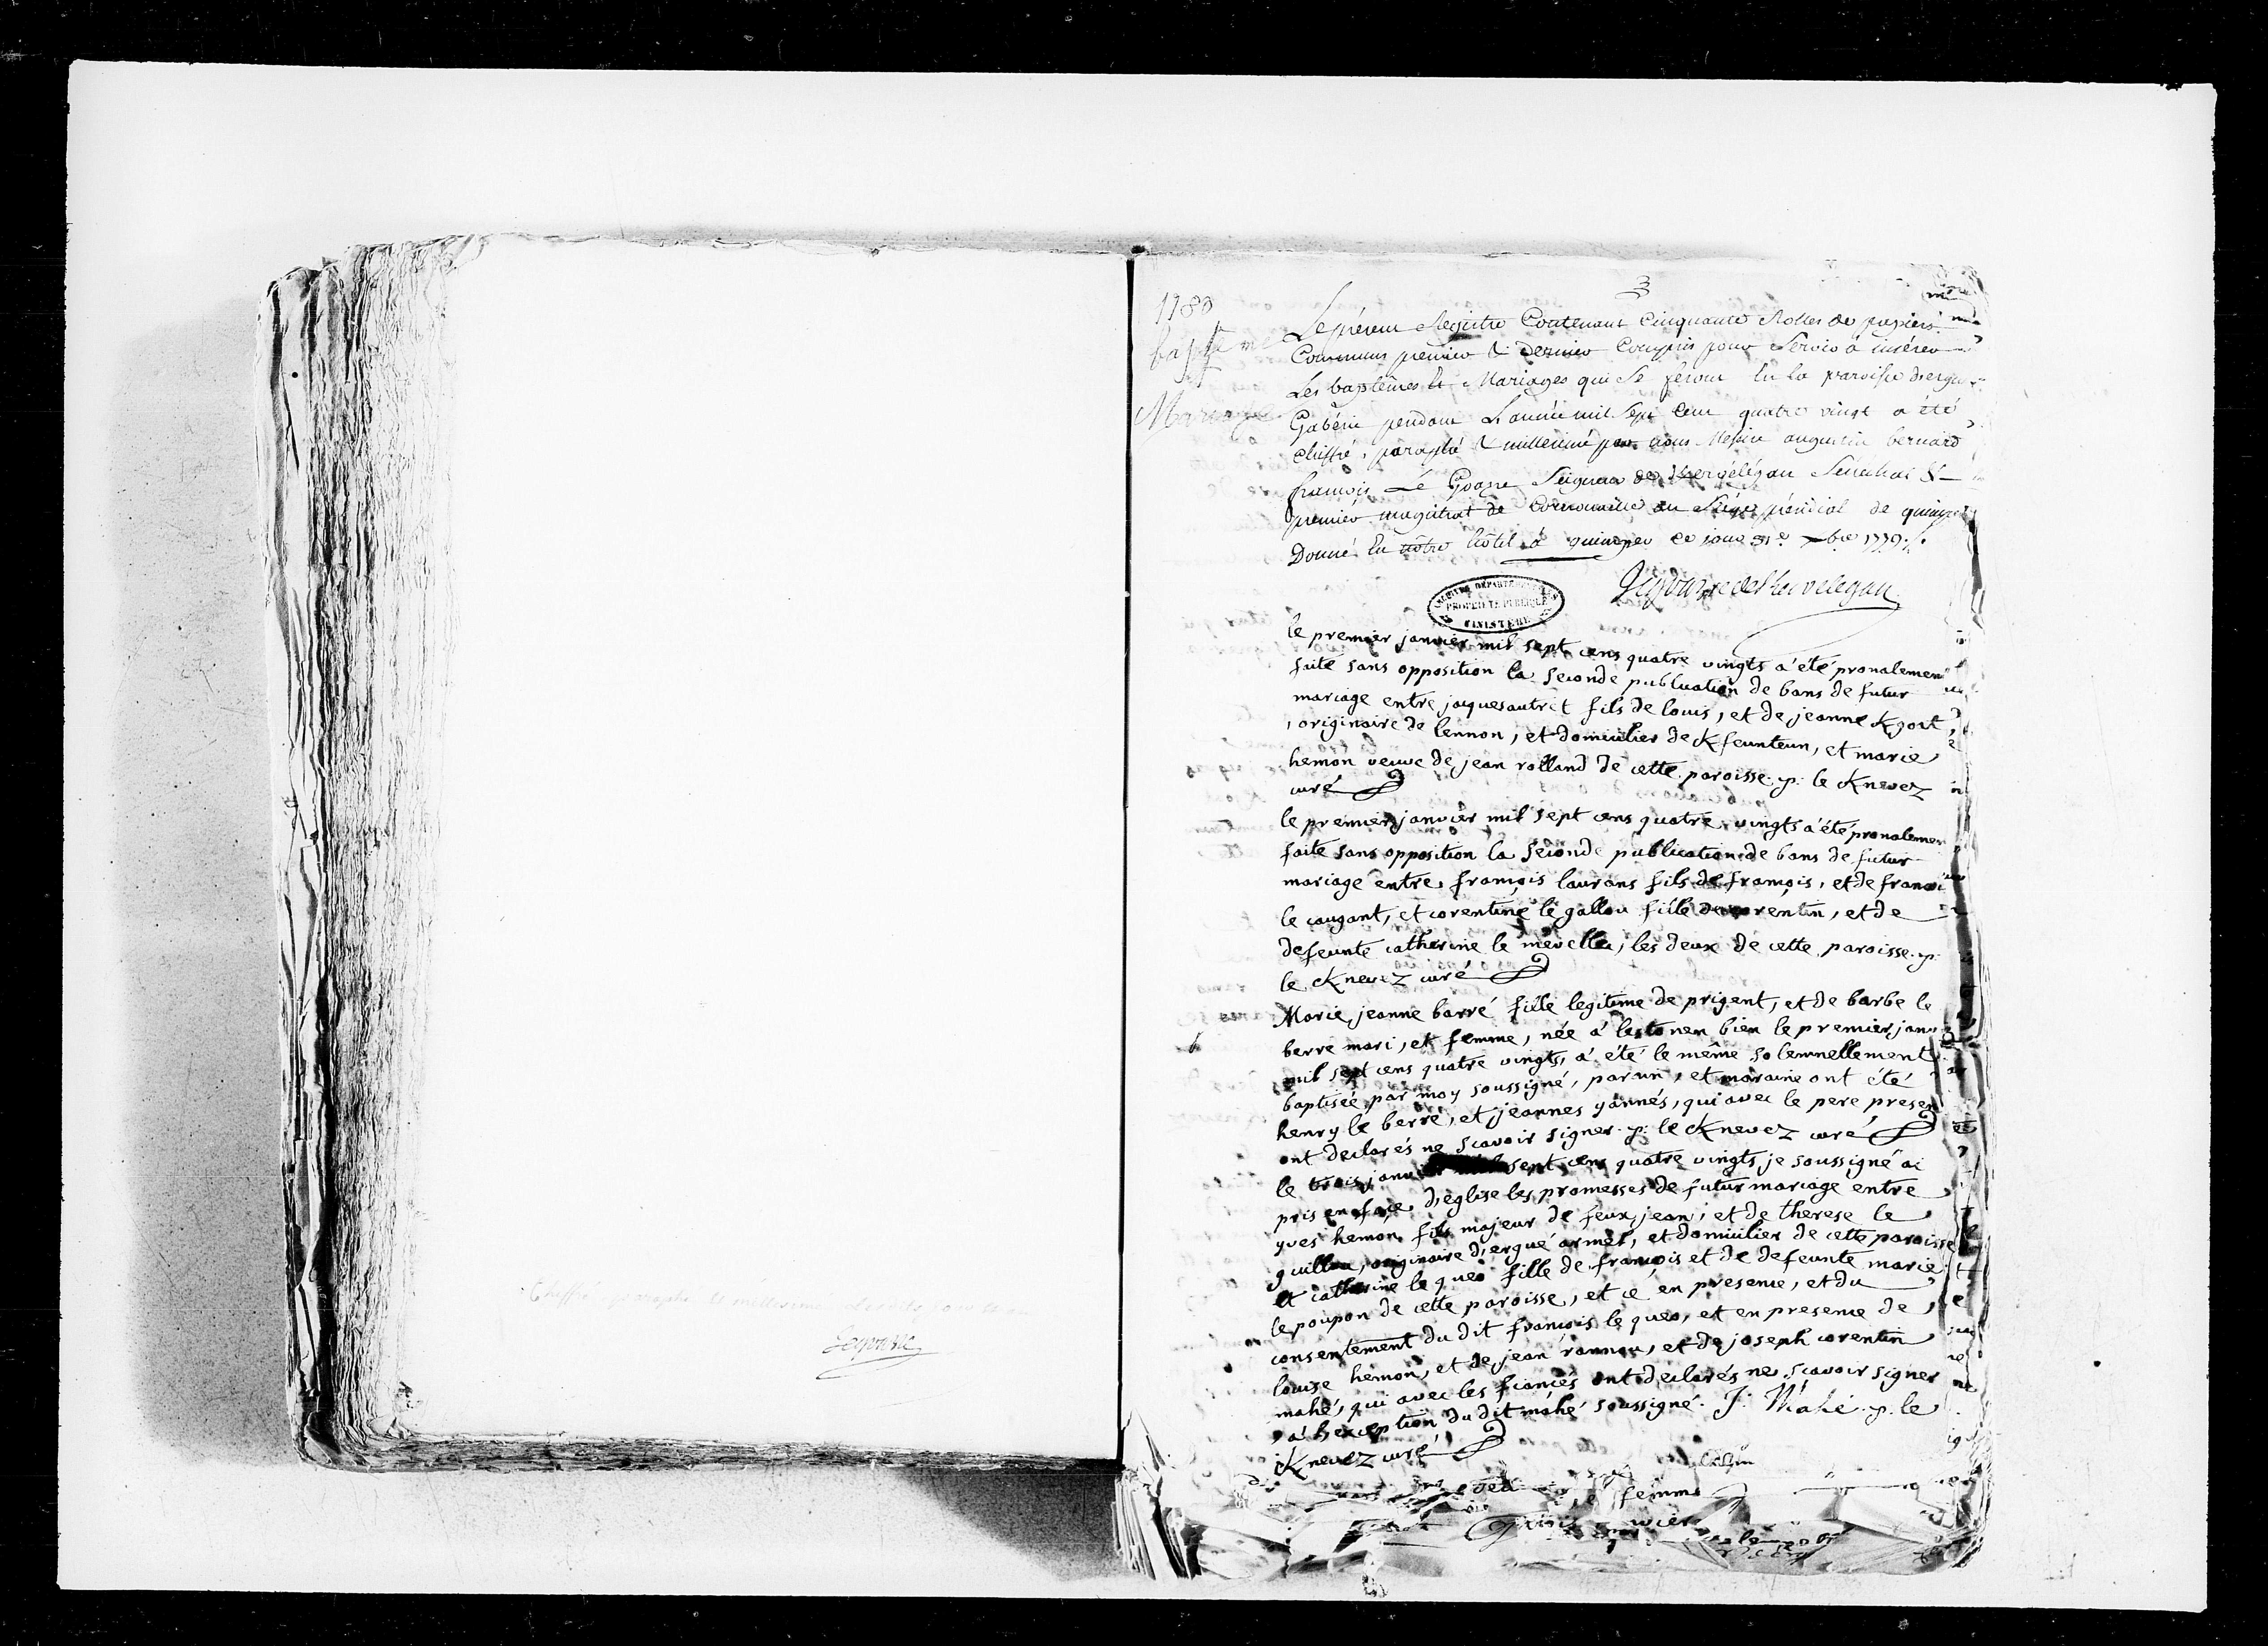 Chiffré paraphé et millésimé
Legoazre
1780
baptême
Mariage
3
Le présent Registre Contenant Cinquante Rolles de papiers
Communs premier & dernier Compris pour Servir à insérer
Les baptêmes & Mariages qui Se feront En la paroisse d'ergué
Gabéric pendant L'année mil Sept Cent quatre vingt a été
chiffré, paraphé & millesimé par nous Messire augustin bernard
françois Le Goazre Seigneur de Kervélégan Sénéchal &
premier magistrat de Cornouaille au Siége présidial de quimper
Donné En nôtre hôtel à quimper ce jour 31e xbre 1779 ./.
Legoazre de Kervelegan
ARCHIVES DÉPARTEMENTALES
PROPRIÉTÉ PUBLIQUE
FINISTÈRE
le premier janvier mil sept cens quatre vingts a été pronalement
faite sans opposition la seconde publication de bans de futur
mariage entre jacques autret fils de louis, et de jeanne Kgoat,
originaire de lennon, et domicilier de Kfeunteun, et marie
hemon veuve de jean rolland de cette paroisse. p. le Knevez
curé
le premier janvier mil sept cens quatre vingts a été pronalement
faite sans opposition la seconde publication de bans de futur
mariage entre françois laurans fils de françois, et de
le caugant, et corentine le gallou fille de corentin, et de
defeunte catherine le mevellec, les deux de cette paroisse. p.
le Knevez curé
b
Marie jeanne barré fille legitime de prigent, et de barbe le
berre mari, et femme, née á lestonen bien le premier janv
mil sept cens quatre vingts, a été le même solemnellement
baptisée par moy soussigné, parain, et maraine ont été
henry le berre, et jeannes yannés, qui avec le pere present
ont declarés ne scavoir signer. p. le Knevez curé
le trois janvier sept cens quatre vingts je soussigné ai
pris en face d'eglise les promesses de futur mariage entre
yves hemon fils majeur de feux jean, et de therese le
guillou, originaire d'ergué armel, et domicilier de cette paroisse
et catherine le queo fille de françois et de defeunte marie
le poupon de cette paroisse, et ce en presence, et du
consentement du dit françois le queo, et en presence de
louise hemon, et de jean rannou, et de joseph corentin
mahé, qui avec les fiancés ont declarés ne scavoir signer
a l'exception du dit mahé soussigné. J. Mahé. p. le
Knevez curé
femme